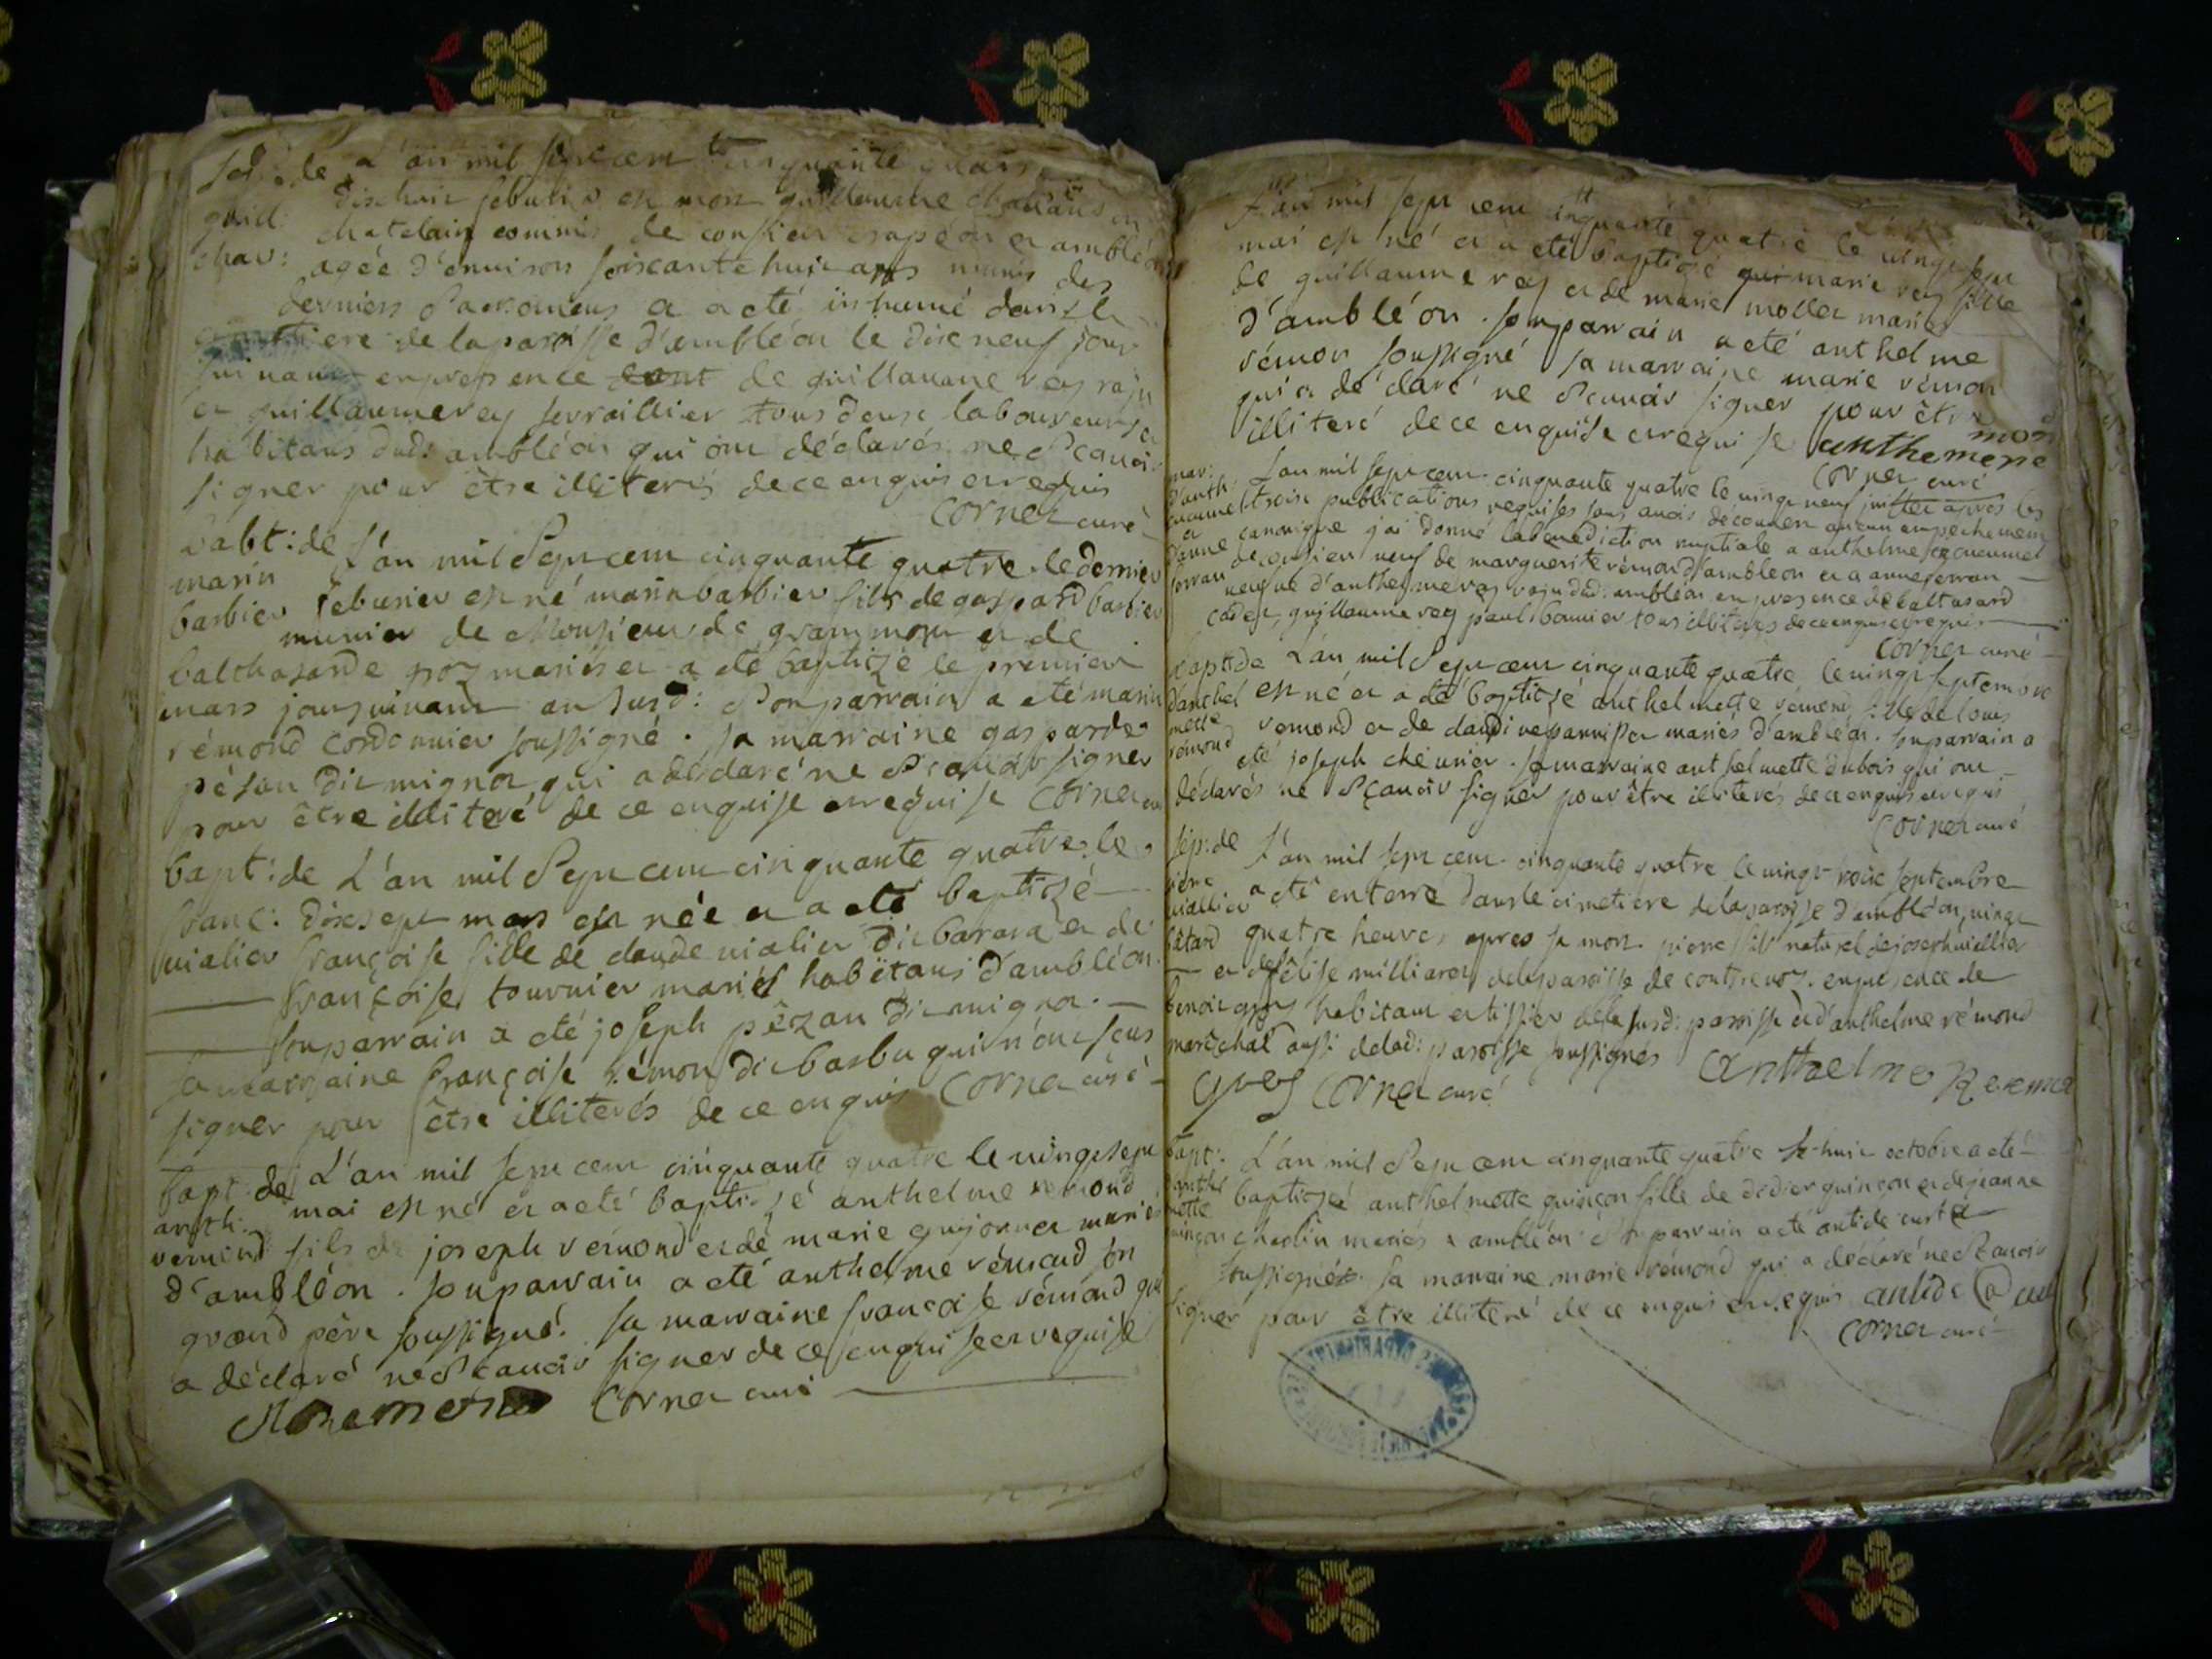 Sep: de L'an mil sept cent cinquante quatre
guill: dix huit febvrier est mort guillaume
chav: chatelain commis de consieu crapéou et ambléon
agée d'environ soixante huit ans munis des
derniers sacremens et a eté inhumé dans le
cimetiere de la paroisse d'ambléon le dix neuf jour
suivant en presence de guillaume rey
et guillaume rey serraillier tous deux laboureurs et
habitans dud: ambléon qui ont déclarés ne sçavoir
signer pour être illiterés de ce enquis et requis
Cornet curé
babt: de L'an mil sept cent cinquante quatre le dernier
marin
barbier febvrier est né marin barbier fils de gaspard barbier
munier de Monsieur de grammont et de
balthasarde poz mariés et a eté baptizé le premier
mars jour suivant au susd: son parrain a eté marin
rémond cordonnier soussigné. sa marraine gasparde
pésan dit mignot qui a declaré ne sçavoir signer
pour être illiteré de ce enquise et requise Cornet curé
bapt: de L'an mil sept cent cinquante quatre le
franc: dixsept mars est née et a eté baptizé
vialier françoise fille de claude vialier dit barara et de
françoise tournier mariés habitans d'ambléon.
son parrain a eté joseph pêzan dit mignot.
sa marraine françoise rémon dit barbu qui n'ont sceus
signer pour être illiterés de ce enquis Cornet curé
bapt: de L'an mil sept cent cinquante quatre le vingt sept
anth: mai est né et a eté baptizé anthelme remond
remond fils de joseph remond et de marie gujonnet mariés
d'ambléon. son parrain a eté anthelme rémond son
grand père soussigné. sa marraine françoise rémond qui
a déclaré ne sçavoir signer de ce enquise et requise
Cornet curé
L'an mil sept cent cinquante quatre le vingt sept
mai est né et a eté baptizé marie rey fille
de guillaume rey et de marie mollet mariés
d'ambléon. son parrain a eté anthelme
rémon soussigné sa marraine marie rémon
qui a déclaré ne sçavoir signer pour être
illiteré de ce enquise et requise anthemeremon
Cornet curé
mar: L'an mil sept cent cinquante quatre le vingt neuf juillet apres les
d'anth: trois publications requises sans avoir decouvert aucun empechement
canonique j'ai donné la benediction nuptiale a anthelme
et de consieu veuf de marguerite rémond d'ambleon et a anne ferran
d'anne
ferran veuve d'anthelme rey dud: ambléon en presence de baltasard
guillaume rey paul bonnier tous illiterés de ce enquis et requis
Cornet curé
bapt: de L'an mil sept cent cinquante quatre le vingt septembre
d'anthel est né et a eté baptizé anthelmette rémond fille de louis
mette
rémond remond et de claudine mariés d'ambléon. son parrain a
eté joseph chevrier. sa marraine anthelmette dubois qui ont
déclarés ne sçavoir signer pour être illiterés de ce enquis et requis
Cornet curé
sép: de L'an mil sept cent cinquante quatre le vingt trois septembre
pierre
viallier a eté enterré dans le cimetiere de la paroisse d'ambléon, vingt
bâtard quatre heures apres sa mort pierre fils naturel de joseph viallier
et de élise milliaret de la paroisse de contrevoz. en presence de
benoit gros habitant et tissier de la susd: paroisse et d'anthelme rémond
maréchal aussi de lad: paroisse soussignés Anthelme Remond
Cornet curé
bapt: L'an mil sept cent cinquante quatre le huit octobre a eté
d'anthel
mette baptizée anthelmette guinçon fille de didier guinçon et de jeanne
guinçon charlin mariés a ambléon. son parrain a eté antide
soussigné. sa marraine marie rémond qui a déclaré ne sçavoir
signer pour être illiteré de ce enquis et requis antide
Cornet curé